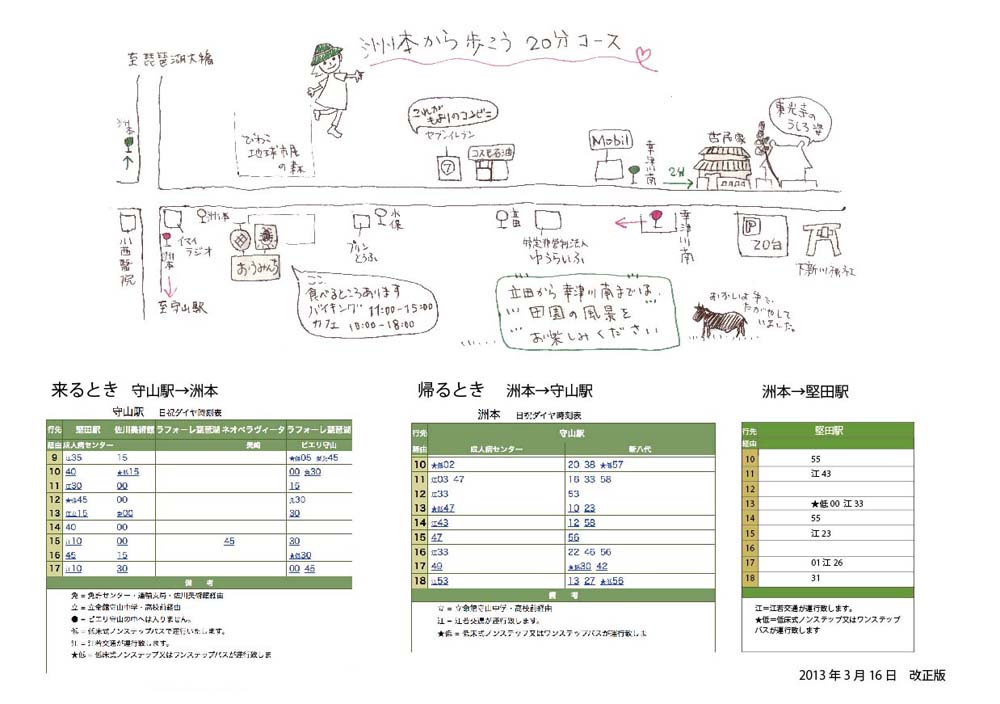 洲本から歩こう 20分コース
至琵琶湖大橋
洲本
びわこ
地球市民
の森
これが
もよりのコンビニ
セブンイレブン
7
コスモ石油
Mobil
幸津川南
2分
古民家
東光寺の
うしろ姿
川西医院
イマイ
ラジオ
洲本
洲本
至守山駅
おうみんち
プリン
とうふ
水保
立田
特定非営利法人
ゆうらいふ
幸津川南
P
20台
下新川神社
ここ、
食べるところあります
バイキング 11:00-15:00
カフェ 10:00-18:00
立田から幸津川南までは、
田園の風景を
お楽しみください
むかしは牛で、
たがやして
いました。
来るとき 守山駅→洲本
守山駅 日祝ダイヤ時刻表
行先 堅田駅 佐川美術館 ラフォーレ琵琶湖 ネオベラヴィータ ラフォーレ琵琶湖
経由 成人病センター 美崎 ピエリ守山
9 江35 15 ★低05 45
10 40 ★低15 00 30
11 江30 00 15
12 ★低45 00 30
13 15 00 30
14 40 00
15 江10 00 45 30
16 45 15 ★低30
17 江10 30 00 45
備 考
免 = 免許センター・運輸支局・佐川美術館経由
立 = 立命館守山中学・高校前経由
● = ピエリ守山の中へは入りません。
低 = 低床式ノンステップバスで運行いたします。
江 = 江若交通が運行致します。
★低 = 低床式ノンステップ又はワンステップバスが運行致しま
帰るとき 洲本→守山駅
洲本 日祝ダイヤ時刻表
行先 守山駅
経由 成人病センター 新八代
10 ★低02 20 38 ★低57
11 江03 47 16 33 58
12 江33 53
13 ★低47 10 23
14 江43 12 58
15 47 56
16 江33 22 46 56
17 49 ★低30 42
18 江53 13 27 ★低56
備 考
立 = 立命館守山中学・高校前経由
江 = 江若交通が運行致します。
★低 = 低床式ノンステップ又はワンステップバスが運行致しま
洲本→堅田駅
行先 堅田駅
経由
10 55
11 江 43
12
13 ★低 00 江 33
14 55
15 江 23
16
17 01 江 26
18 31
江＝江若交通が運行致します。
★低＝低床式ノンステップ又はワンステップ
バスが運行致します
2013 年 3 月 16 日 改正版